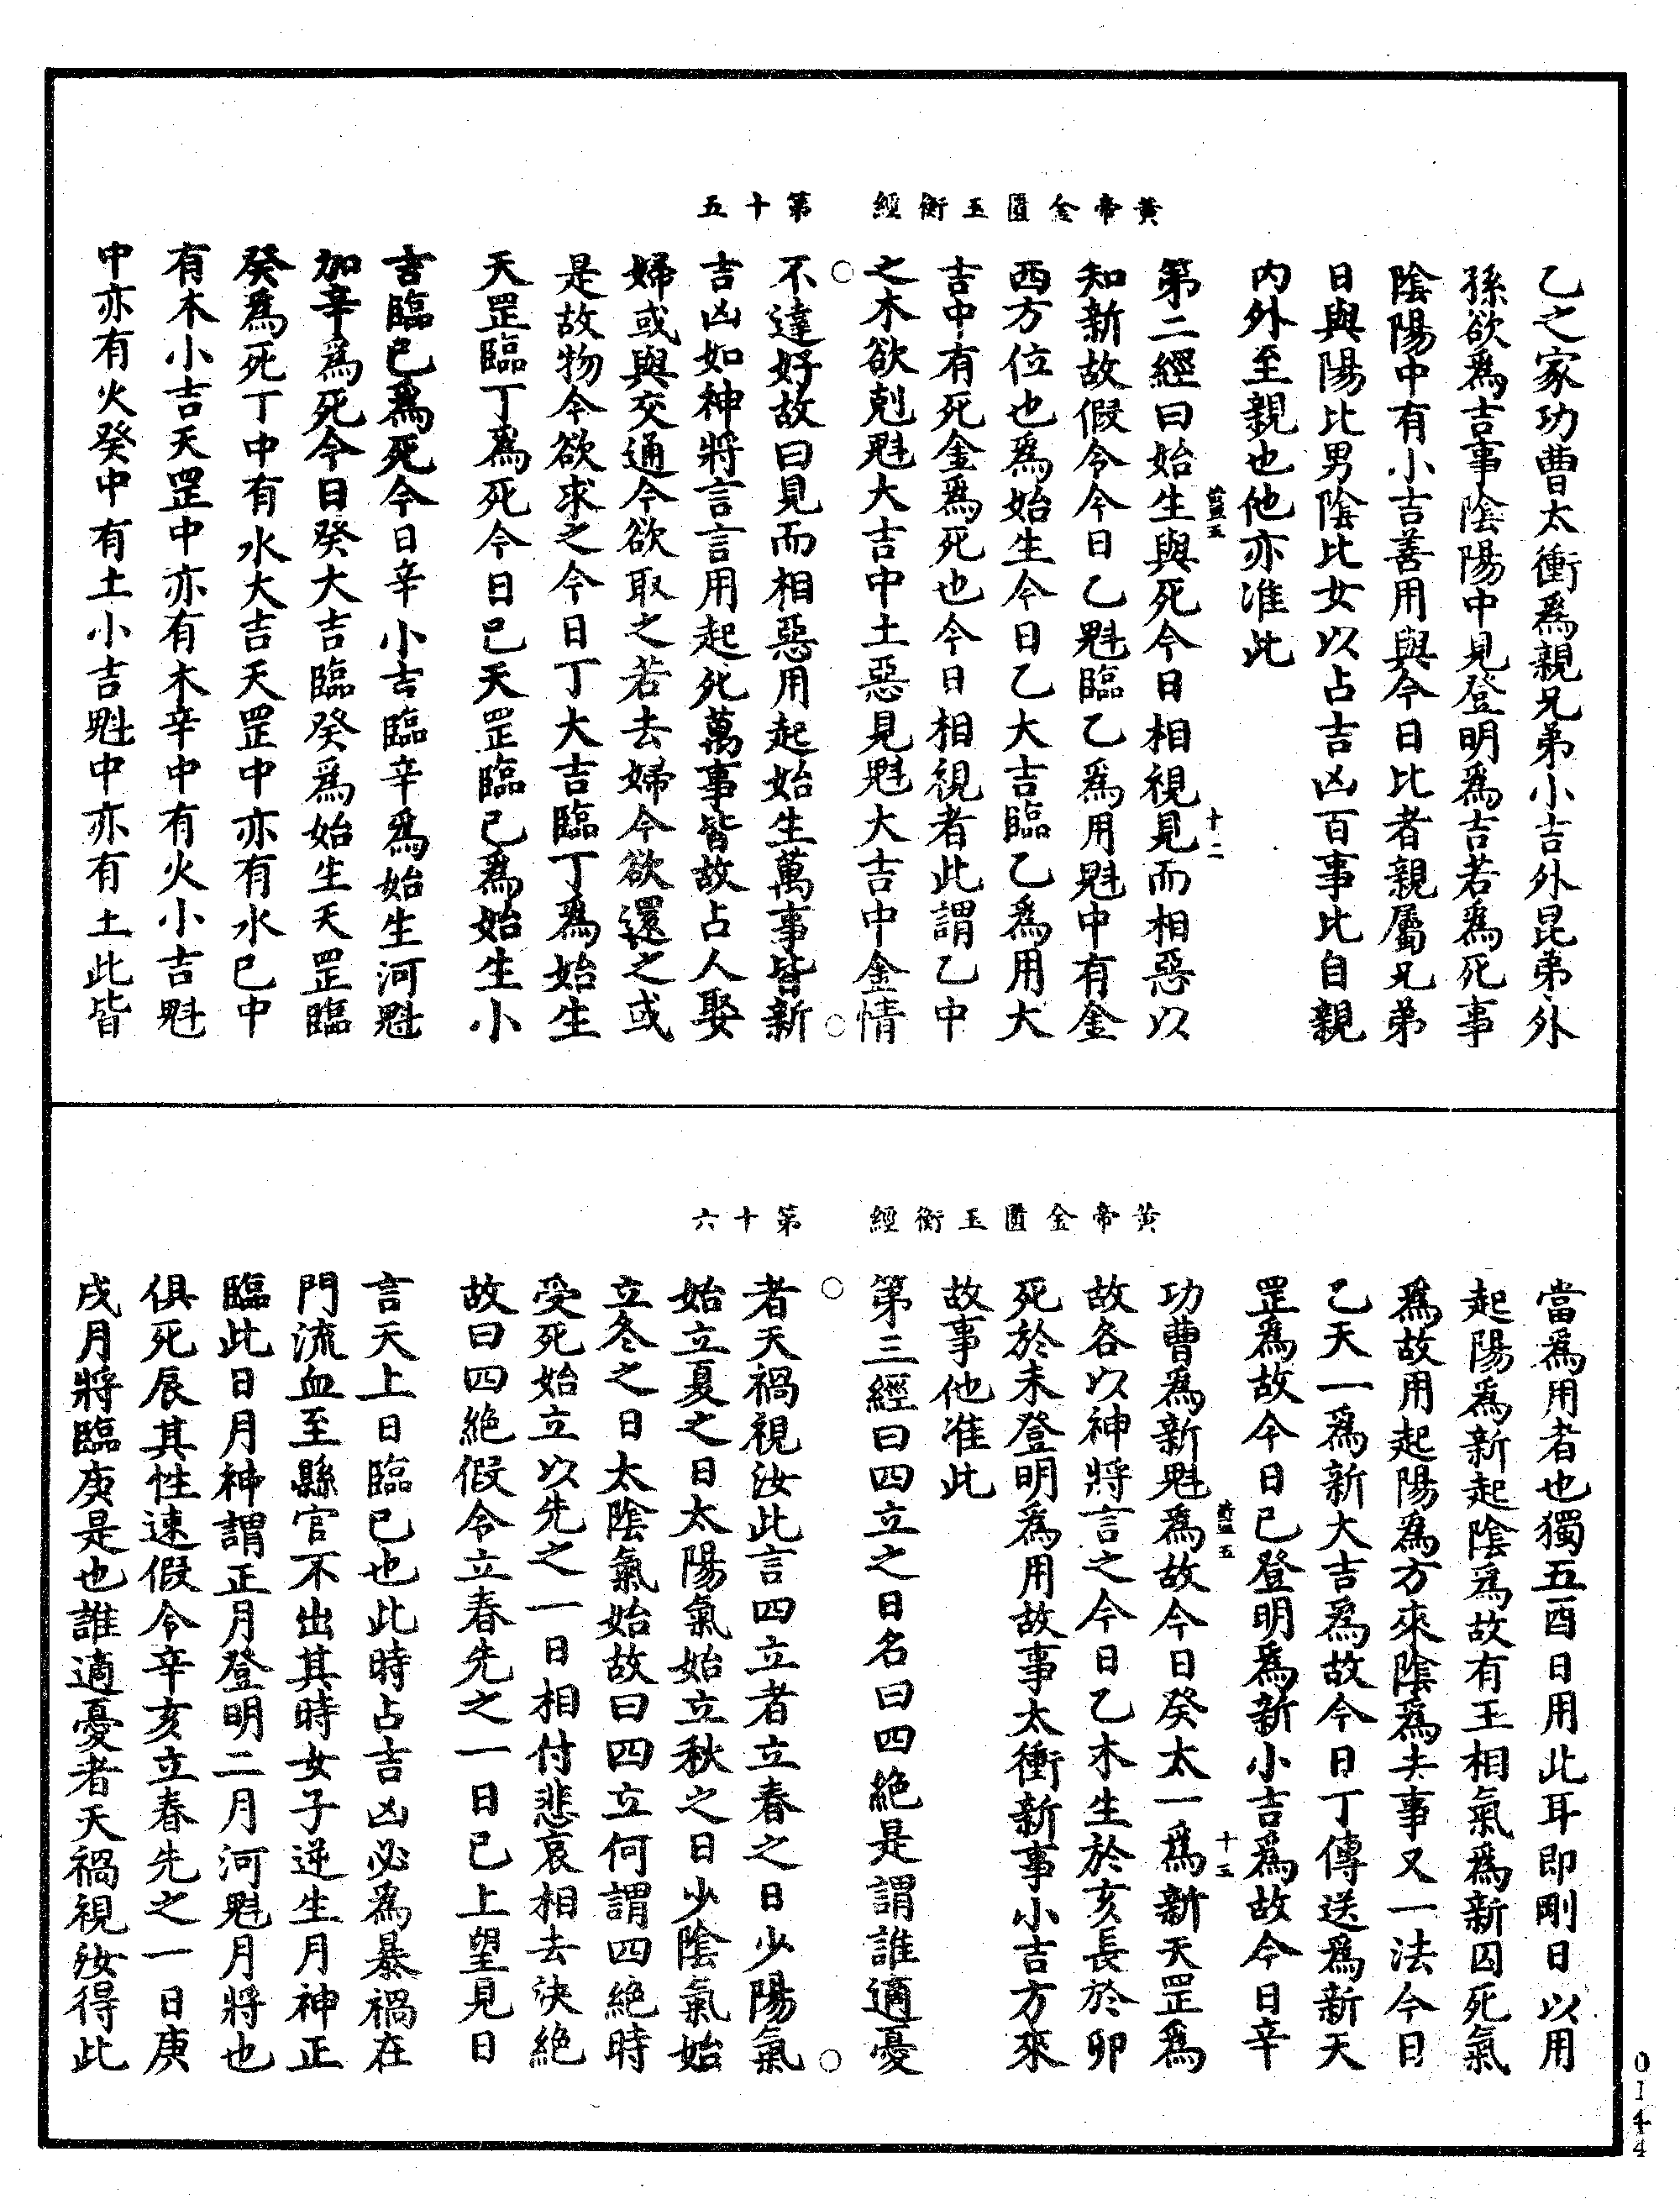 黃帝金匱玉衡經　第十五
乙之家功曹太衝爲親兄弟小吉外昆弟外
孫欲爲吉事陰陽中見登明爲吉若爲死事
陰陽中有小吉善用與今日比者親屬兄弟
日與陽比男陰比女以占吉凶百事比自親
內外至親也他亦准此
第二經曰始生與死今日相視見而相惡以
知新故假令今日乙魁臨乙爲用魁中有金
西方位也爲始生今日乙大吉臨乙爲用大
吉中有死金爲死也今日相視者此謂乙中
之木欲剋魁大吉中土惡見魁大吉中金情
不達好故曰見而相惡用起始生萬事皆新
吉凶如神將言言用起死萬事皆故占人娶
婦或與交通今欲取之若去婦今欲還之或
是故物今欲求之今日丁大吉臨丁爲始生
天罡臨丁爲死今日己天罡臨己爲始生小
吉臨己爲死今日辛小吉臨辛爲始生河魁
加辛爲死今日癸大吉臨癸爲始生天罡臨
癸爲死丁中有水大吉天罡中亦有水己中
有木小吉天罡中亦有木辛中有火小吉魁
中亦有火癸中有土小吉魁中亦有土此皆
十二
黃帝金匱玉衡經　第十六
當爲用者也獨五酉日用此耳即剛日以用
起陽爲新起陰爲故有王相氣爲新囚死氣
爲故用起陽爲方來陰爲去事又一法今日
乙天一爲新大吉爲故今日丁傳送爲新天
罡爲故今日己登明爲新小吉爲故今日辛
功曹爲新魁爲故今日癸太一爲新天罡爲
故各以神將言之今日乙木生於亥長於卯
死於未登明爲用故事太衝新事小吉方來
故事他准此
第三經曰四立之日名曰四絕是謂誰適憂
者天禍視汝此言四立者立春之日少陽氣
始立夏之日太陽氣始立秋之日少陰氣始
立冬之日太陰氣始故曰四立何謂四絕時
受死始立以先之一日相付悲哀相去決絕
故曰四絕假令立春先之一日已上望見日
言天上日臨已也此時占吉凶必爲暴禍在
門流血至縣官不出其時女子逆生月神正
臨此日月神謂正月登明二月河魁月將也
俱死辰其性速假令辛亥立春先之一日庚
戌月將臨庚是也誰適憂者天禍視汝得此
十三
0144